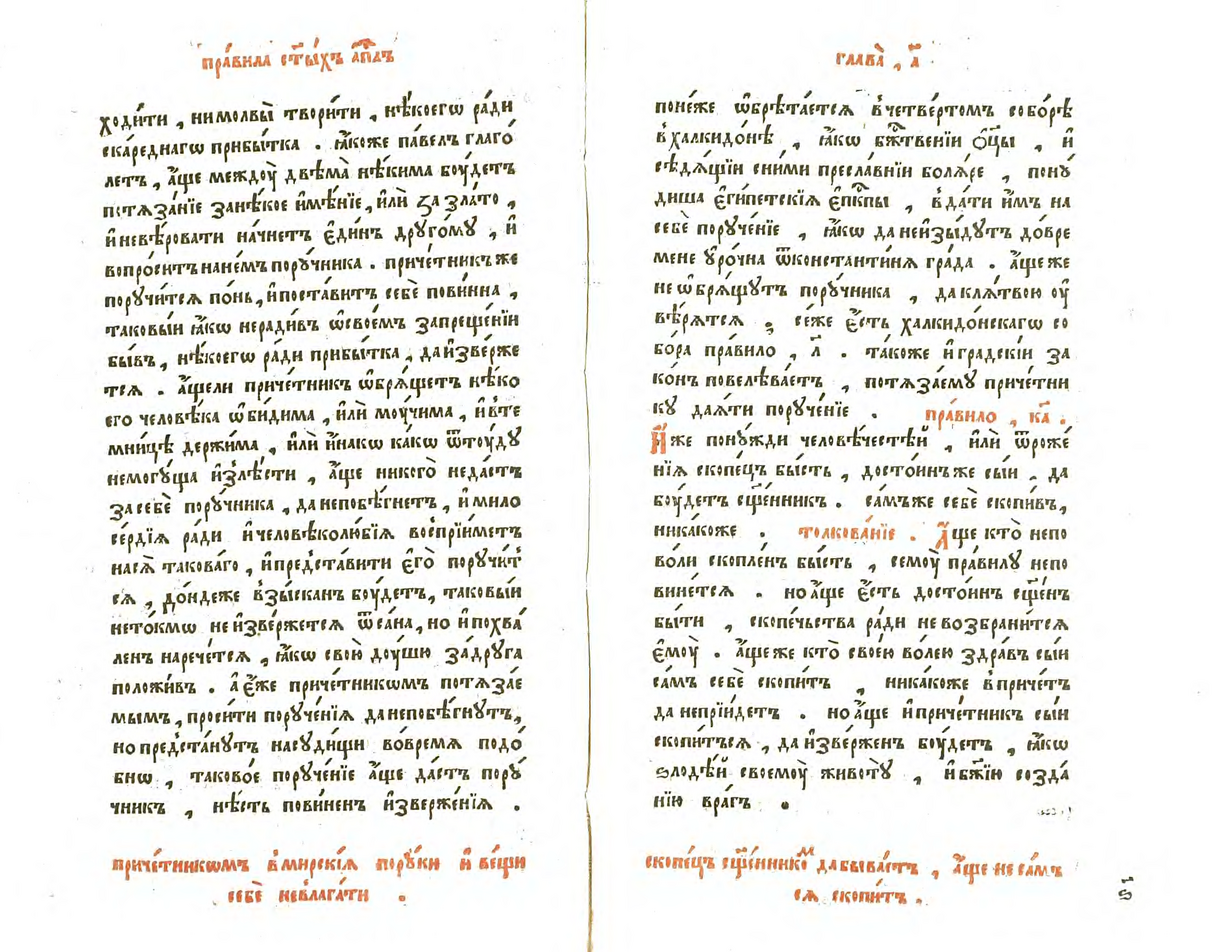 пра́вила ст҃ы́хъ а҆п҃лъ
ходи́ти , нимолвы̀ твори́ти , нѣ́коегѡ ра́ди
ска́реднагѡ прибы́тка . ꙗ҆́коже па́велъ глаго́
летъ , а҆́ще междоу̀ двѣма̀ нѣ́кима боу́детъ
потѧза́нїе занѣ́кое и҆мѣ́нїе , и҆лѝ ꙁа зла́то ,
и҆невѣ́ровати на́чнетъ є҆ди́нъ друго́му , и҆
вопро́ситъ нане́мъ пору́чника . приче́тникъ же
поручи́тсѧ по́нь , и҆поста́витъ себѐ пови́нна ,
таковы́и ꙗ҆́кѡ неради́въ ѡ҆свое́мъ запреще́нїи
бы́въ , нѣ́коегѡ ра́ди прибы́тка , даи҆зве́рже
тсѧ . а҆́щели приче́тникъ ѡ҆брѧ́щетъ нѣ́ко
его человѣ́ка ѡ҆би́дима , и҆лѝ моу́чима , и҆вте
мни́цѣ держи́ма , и҆лѝ и҆́накѡ ка́кѡ ѿтоу́ду
немогу́ща и҆злѣ́сти , а҆́ще никого̀ неда́стъ
засебѐ пору́чника , данепобѣ́гнетъ , и҆мило
се́рдїѧ ра́ди и҆человѣколю́бїѧ воспрїи́метъ
насѧ̀ такова́го , и҆предста́вити є҆го̀ поручи́т
сѧ , до́ндеже взы́сканъ боу́детъ , таковы́и
нето́кмѡ не и҆зве́ржетсѧ ѿса́на , но и҆похва́
ленъ нарече́тсѧ , ꙗ҆́кѡ свою̀ доу́шю за́друга
положи́въ . а҆ є҆́же приче́тникѡмъ потѧза́е
мымъ , проси́ти поруче́нїѧ данепобѣ́гнутъ ,
но предста́нутъ насу́дищи во́времѧ подо́
бнѡ , таково́е поруче́нїе а҆́ще да́стъ пору́
чникъ , нѣ́сть пови́ненъ и҆зверже́нїѧ .
приче́тникѡмъ вмирскі́ѧ пору́ки и҆ ве́щи
себѐ невлага́ти .
глава̀ , а҃
поне́же ѡ҆брѣта́етсѧ вчетве́ртомъ собо́рѣ
вхалкидо́нѣ , ꙗ҆́кѡ бж҃твенїи ѻ҆ц҃ы , и҆
сѣдѧ́щїи сни́ми пресла́внїи болѧ́ре , пону́
диша є҆ги́петскїѧ є҆п҃кпы , вда́ти и҆̀мъ на
себѐ поруче́нїе , ꙗ҆́кѡ данеи҆зы́дутъ до́вре
мене уро́чна ѿконстанти́нѧ гра́да . а҆́ще же
не ѡ҆брѧ́щутъ пору́чника , даклѧ́твою оу҆
вѣ́рѧтсѧ ; се́же є҆́сть халкидо́нскагѡ со
бо́ра пра́вило , л҃ . та́коже и҆гра́дскїи за
ко́нъ повелѣва́етъ , потѧза́ему приче́тни
ку даѧ́ти поруче́нїе . пра́вило , ка҃ .
И҆́же пону́жди человѣ́честѣй , и҆лѝ ѿроже́
нїѧ скопе́цъ бы́сть , досто́инъ же сы́и , да
боу́детъ сщ҃е́нникъ . са́мъже себѐ скопи́въ ,
ника́коже . толкова́нїе . А҆́ще кто̀ непо
во́ли скопле́нъ бы́сть , семоу̀ пра́вилу непо
вине́тсѧ . но а҆́ще є҆́сть досто́инъ сщ҃е́нъ
бы́ти , скопе́чьства ра́ди не возбрани́тсѧ
є҆моу̀ . а҆́ще же кто̀ свое́ю во́лею здра́въ сы́и
са́мъ себѐ скопи́тъ , ника́коже впри́четъ
да непрїи́детъ . но а҆́ще и҆приче́тникъ сы́и
скопи́тъсѧ , да и҆зве́рженъ боу́детъ , ꙗ҆́кѡ
ѕлодѣ́й своемоу̀ животу̀ , и҆бж҃їю созда́
нїю вра́гъ .
скопе́цъ сщ҃е́нникоⷨ дабыва́етъ , а҆́ще не са́мъ
сѧ скопи́тъ .